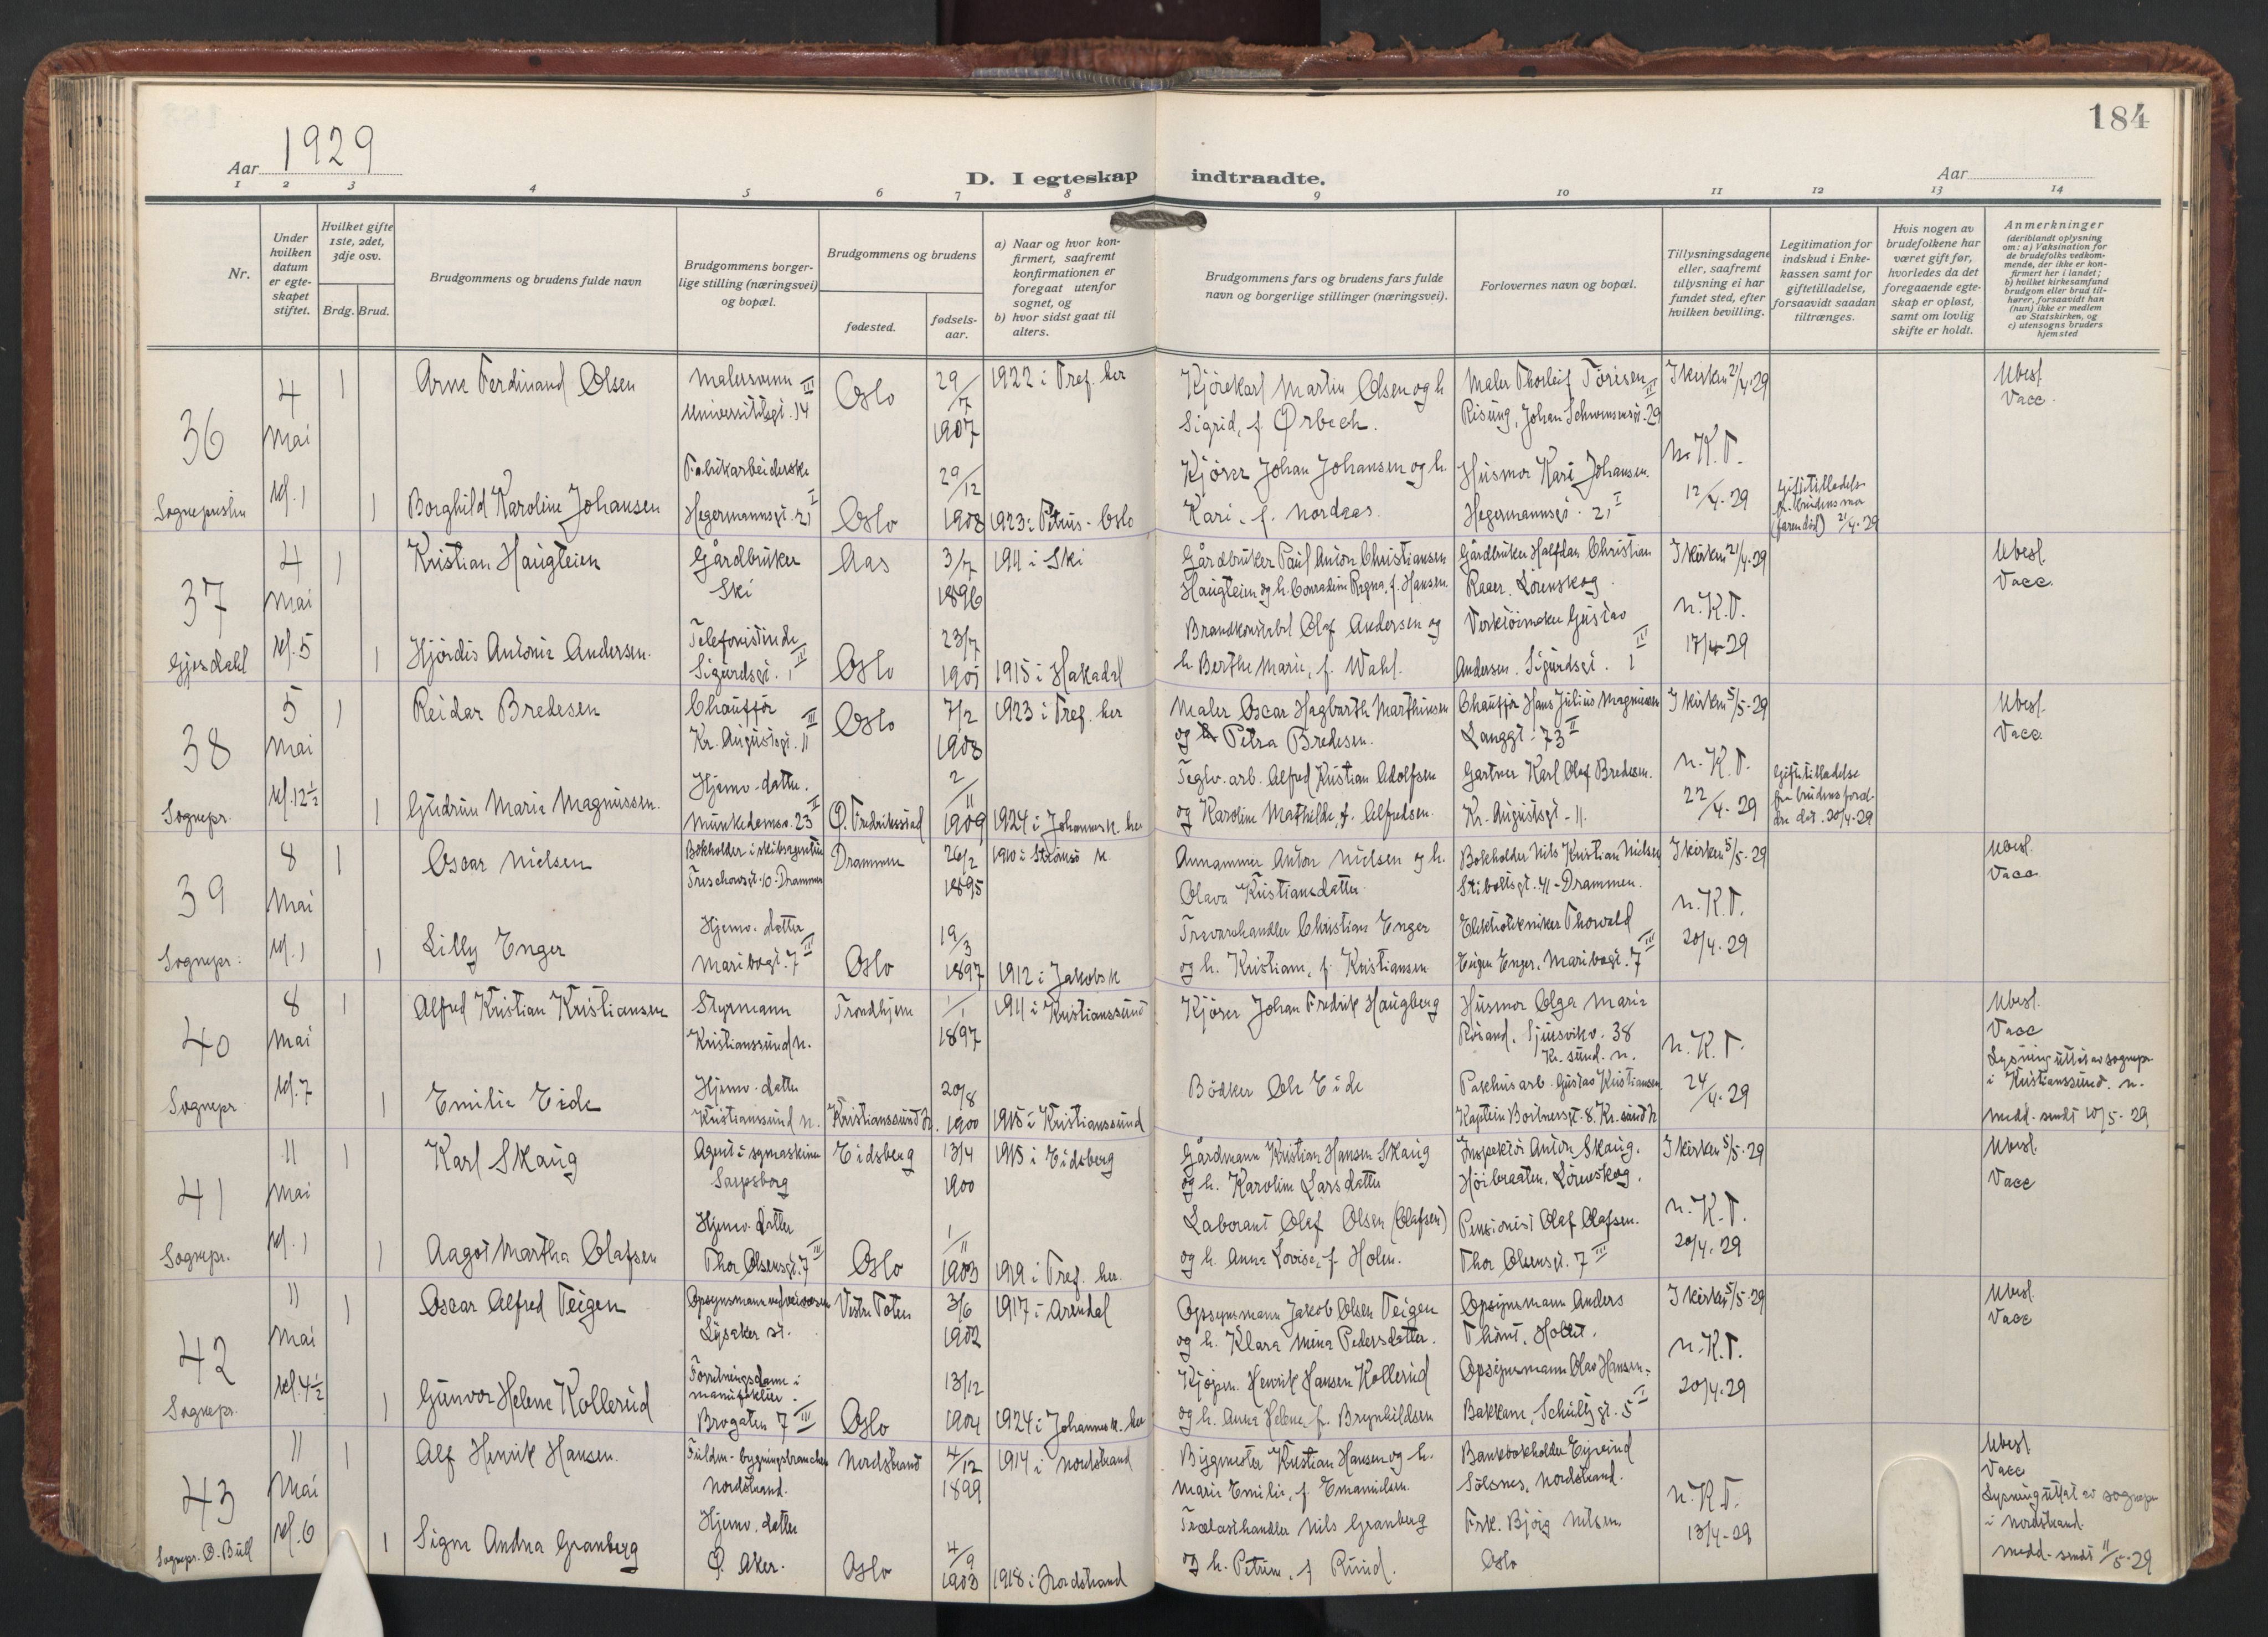 184
Aar 1929
D. I egteskap indtraadte.
Aar
1 2 3 4 5 6 7 8 9 10 11 12 13 14
Nr.
Under hvilken datum er egteskapet stiftet.
Hvilket gifte 1ste, 2det, 3dje osv.
Brdg. Brud.
Brudgommens og brudens fulde navn
Brudgommens borgerlige stilling (næringsvei) og bopæl.
Brudgommens og brudens
fødested.
fødselsaar.
a) Naar og hvor konfirmert, saafremt konfirmationen er foregaat utenfor sognet, og
b) hvor sidst gaat til alters.
Brudgommens fars og brudens fars fulde navn og borgerlige stillinger (næringsvei).
Forlovernes navn og bopæl.
Tillysningsdagene eller, saafremt tillysning ei har fundet sted, efter hvilken bevilling.
Legitimation for indskud i Enkekassen samt for giftetilladelse, forsaavidt saadan tiltrænges.
Hvis nogen av brudefolkene har været gift før, hvorledes da det foregaaende egteskap er opløst, samt om lovlig skifte er holdt.
Anmerkninger
(deriblandt oplysning om: a) Vaksination for de brudefolks vedkommende, der ikke er konfirmert her i landet; b) hvilket kirkesamfund brudgom eller brud tilhører, forsaavidt han (hun) ikke er medlem av Statskirken, og c) utensogns bruders hjemsted
36
4 Mai kl. 1
Sognepresten
1
Arne Ferdinand Olsen
Malersvenn
Universitetsgt. 14 III
Oslo
29/7 1907
1922 i Tref. her
Kjørekarl Martin Olsen og h.
Sigrid, f. Ørbech.
Maler Thorleif Torisen
Risung, Johan Schwensensgt. 29 III
I kirken 21/4-29
Ubesl.
Vacc.
1
Borghild Karoline Johansen
Fabrikarbeiderske
Hegermannsgt. 21 I
Oslo
29/12 1908
1923 i Petrus-Oslo
Kjører Johan Johansen og h.
Kari, f. Nordaas.
Husmor Kari Johansen.
Hegermannsgt. 21 I
n. K. T.
12/4-29
Giftetilladelse
fr. brudens mor
(faren død) 21/4-29
37
4 Mai kl. 5
Gjesdahl
1
Kristian Haugteien
Gårdbruker
Ski
Aas
3/7 1896
1911 i Ski
Gårdbruker Paul Anton Christiansen
Haugteien og h. Conradine Regna, f. Hansen
Gårdbruker Halfdan Christian
Raaer. Lørenskog.
I kirken 21/4-29
Ubesl.
Vacc.
1
Hjørdis Antonie Andersen.
Telefonistinde
Sigurdsgt. 1 III
Oslo
23/7 1901
1915 i Hakadal
Brandkonstabel Olaf Andersen og
h. Berthe Marie, f. Wahl.
Verktøimaker Gustav
Andersen. Sigurdsgt. 1 III
n. K. T.
17/4-29
38
5 Mai kl. 12 1/2
Sognepr.
1
Reidar Bredesen
Chauffør
Kr. Augustsgt. 11 III
Oslo
7/2 1908
1923 i Tref. her
Maler Oscar Hagbarth Marthinsen
og Petra Bredesen.
Chauffør Hans Julius Magnussen
Langgt. 73 II
I kirken 5/5-29
Ubesl.
Vacc.
1
Gudrun Marie Magnussen.
Hjemv. datter.
Munkedamsv. 23 II
Ø. Fredriksstad
2/11 1909
1924 i Johannesk. her
Teglv. arb. Alfred Kristian Adolfsen
og Karoline Mathilde, f. Alfredsen.
Gartner Karl Olaf Bredesen.
Kr. Augustsgt. 11.
n. K. T.
22/4-29
Giftetilladelse
fra brudens foreldre dat. 20/4-29
39
8 Mai kl. 1
Sognepr.
1
Oscar Nielsen
Bokholder i skibsagentur
Treschowsgt. 10 - Drammen
Drammen
26/2 1895
1910 i Strømsø k.
Annammer Anton Nielsen og h.
Olava Kristiansdatter
Bokholder Nils Kristian Nielsen
Stiboltsgt. 41 - Drammen.
I kirken 5/5-29
Ubesl.
Vacc.
1
Lilly Enger
Hjemv. datter
Maribogt. 7 III
Oslo
19/3 1897
1912 i Jakobs k
Trevarehandler Christian Enger
og h. Kristiane, f. Kristiansen
Elektrotekniker Thorvald
Eugen Enger, Maribogt. 7 III
n. K. T.
20/4-29
40
8 Mai kl. 7
Sognepr
1
Alfred Kristian Kristiansen
Styrmann
Kristianssund n.
Trondhjem
1/1 1897
1911 i Kristianssund
Kjører Johan Fredrik Haugberg
Husmor Olga Marie
Røsand. Sjursvikv. 38
Kr. sund. n.
n. K. T.
24/4-29
Ubesl.
Vacc
Lysning utført av sognepr.
i Kristianssund. n.
medd. sendt 10/5-29
1
Emilie Eide
Hjemv. datter
Kristianssund n.
Kristianssund N.
20/8 1900
1915 i Kristianssund
Bødker Ole Eide
Pakhusarb. Gustav Kristiansen
Kaptein Bødtkersgt. 8. Kr. sund N
41
11 Mai kl. 1
Sognepr.
1
Karl Skaug
Agent i symaskiner
Sarpsborg
Eidsberg
13/4 1900
1915 i Eidsberg
Gårdmann Kristian Hansen Skaug
og h. Karoline Larsdatter
Inspektør Anton Skaug.
Høibraaten, Lørenskog.
I kirken 5/5-29
Ubesl.
Vacc
1
Aagot Martha Olafsen
Hjemv. datter
Thor Olsensgt. 7 III
Oslo
1/11 1903
1919 i Tref. her.
Laborant Olaf Olsen (Olafsen)
og h. Anna Lovise, f. Holen.
Pensionist Olaf Olafsen.
Thor Olsensgt. 7 III
n. K. T.
20/4-29
42
11 Mai kl. 4 1/2
Sognepr.
1
Oscar Alfred Teigen
Opsynsmann ved veivesen
Lysaker st.
Vestre Toten
3/6 1902
1917 i Arendal
Opsynsmann Jakob Olsen Teigen
og h. Klara Mina Pedersdatter.
Opsynsmann Anders
I kirken 5/5-29
Ubesl.
Vacc
1
Gunvor Helene Kollerud
Forretningsdame i
manufaktur.
Brogaten 7 III
Oslo
13/12 1904
1924 i Johannesk. her
Kjøpm. Henrik Hansen Kollerud
og h. Anna Helene, f. Brynhildsen
Opsynsmann Olav Hansen
Bakkene, Schultzgt. 5 I
n. K. T.
20/4-29
43
11 Mai kl. 6
Sognepr. Ø. Bull
1
Alf Henrik Hansen.
Fuldm. - bygningsbranchen
Nordstrand.
Nordstrand
4/12 1899
1914 i Nordstrand
Bygmester Kristian Hansen og h.
Marie Emilie, f. Emanuelsen.
Bankbokholder Eyvind
Solsnes, Nordstrand.
n. K. T.
13/4-29
Ubesl.
Vacc
Lysning utført av sognepr
i Nordstrand.
medd. sendt 11/5-29
1
Signe Andrea Granberg
Hjemv. datter
Ø. Aker.
Oslo
4/9 1903
1918 i Nordstrand
Trælasthandler Nils Granberg
og h. Petrine, f. Ruud.
Frk. Bjørg Nilsen.
Oslo